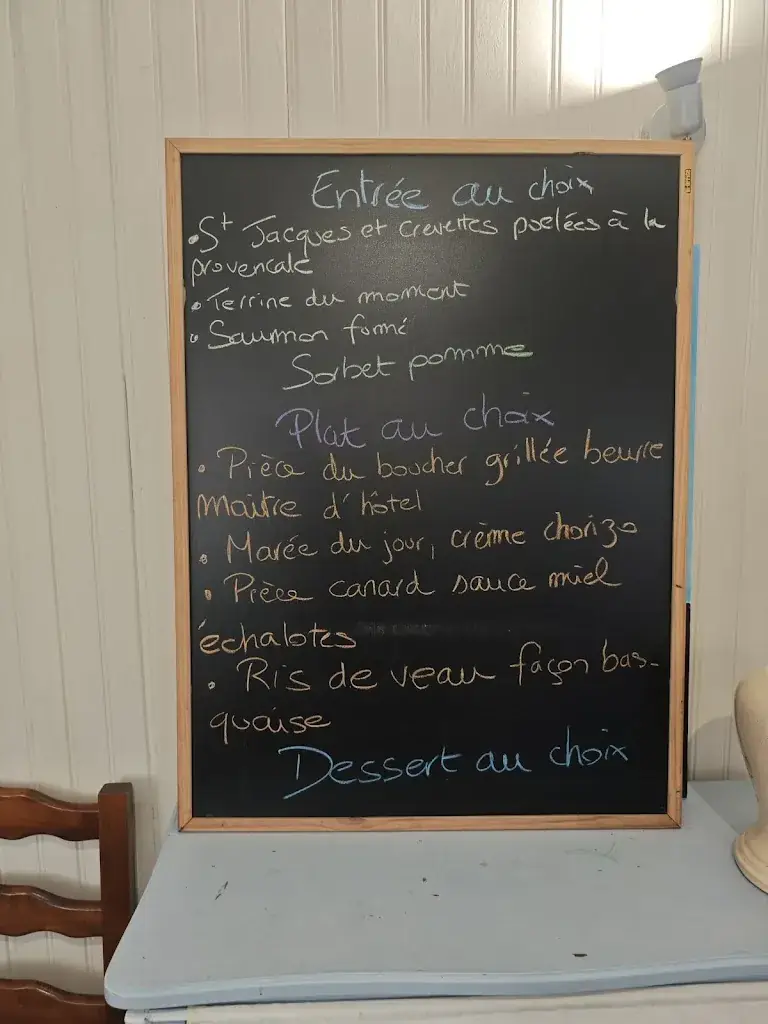 Entrée au choix
• St Jacques et crevettes poelées à la
provencale
• Terrine du moment
• Saumon fumé
Sorbet pomme
Plat au choix
• Pièce du boucher grillée beurre
maitre d'hôtel
• Marée du jour, crème chorizo
• Pièce canard sauce miel
échalotes
• Ris de veau façon bas-
quaise
Dessert au choix